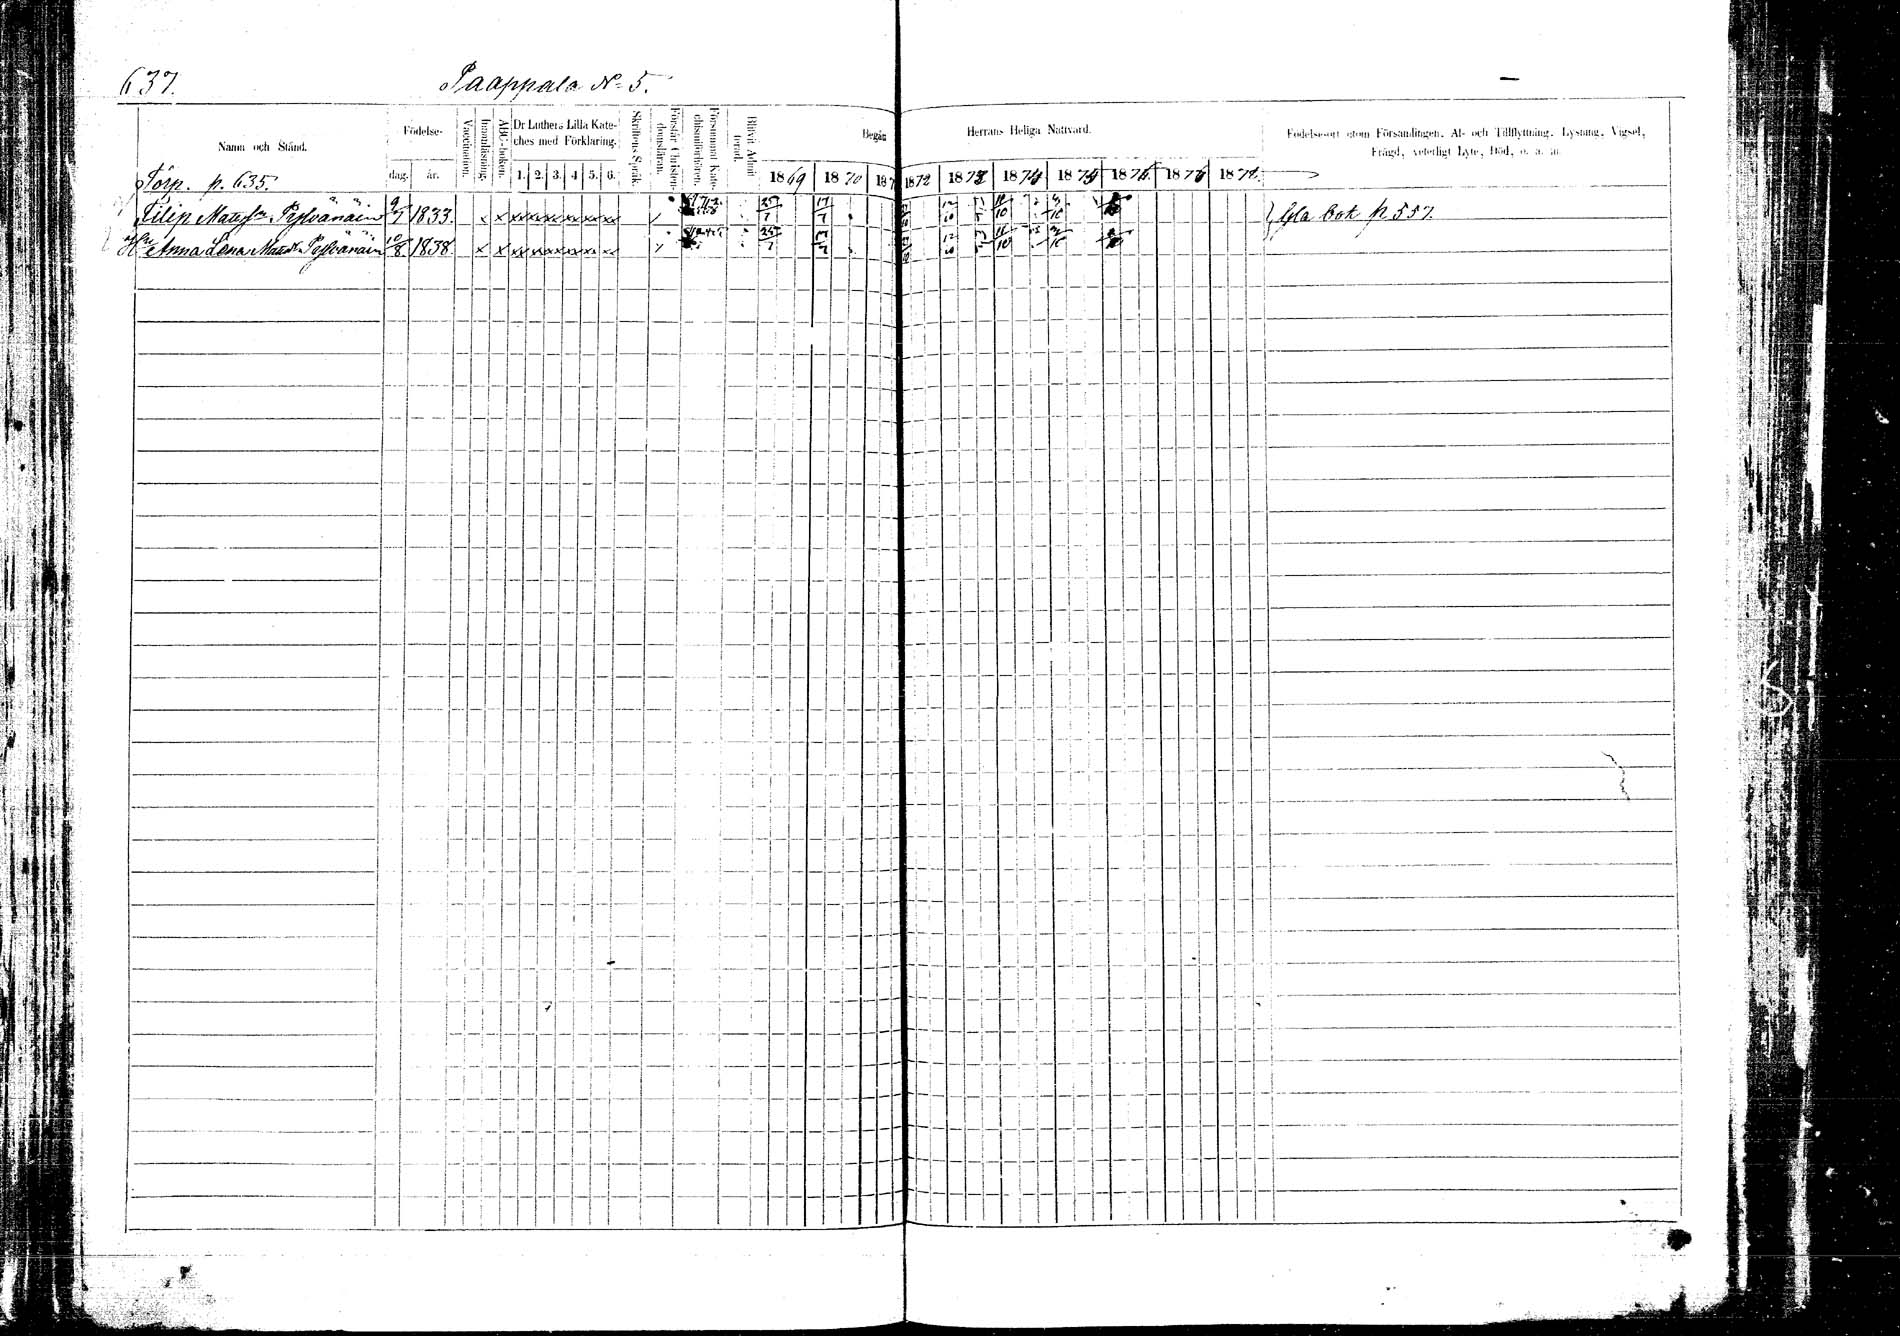 637. Paappala No 5.
Namn och Stånd.
Födelse-
dag. år.
Vaccination.
Innanläsning.
ABC-boken.
Dr Luthers Lilla Kate-
ches med Förklaring.
1. 2. 3. 4 5. 6.
Skriftens Språk.
Förstår Christen-
domsläran.
Försummat Kate-
chismiförhören.
Blifvit Admit-
terad.
Begått Herrans Heliga Nattvard.
1869 1870 187 1872 1873 1874 1875 1876 1876 1878
Födelseort utom Församlingen, Af- och Tillflyttning, Lysning, Vigsel,
Frägd, veterligt Lyte, Död, o. a. m.
Torp. p. 635.
Filip Matsson Pylvänäin 9/7 1833. x x xx xx xx xx xx xx 25/7 17/7 Gla bok p 557.
Hu Anna Lena Matsdr Pylvänäin 10/8 1838. x x xx xx xx xx xx xx 25/7